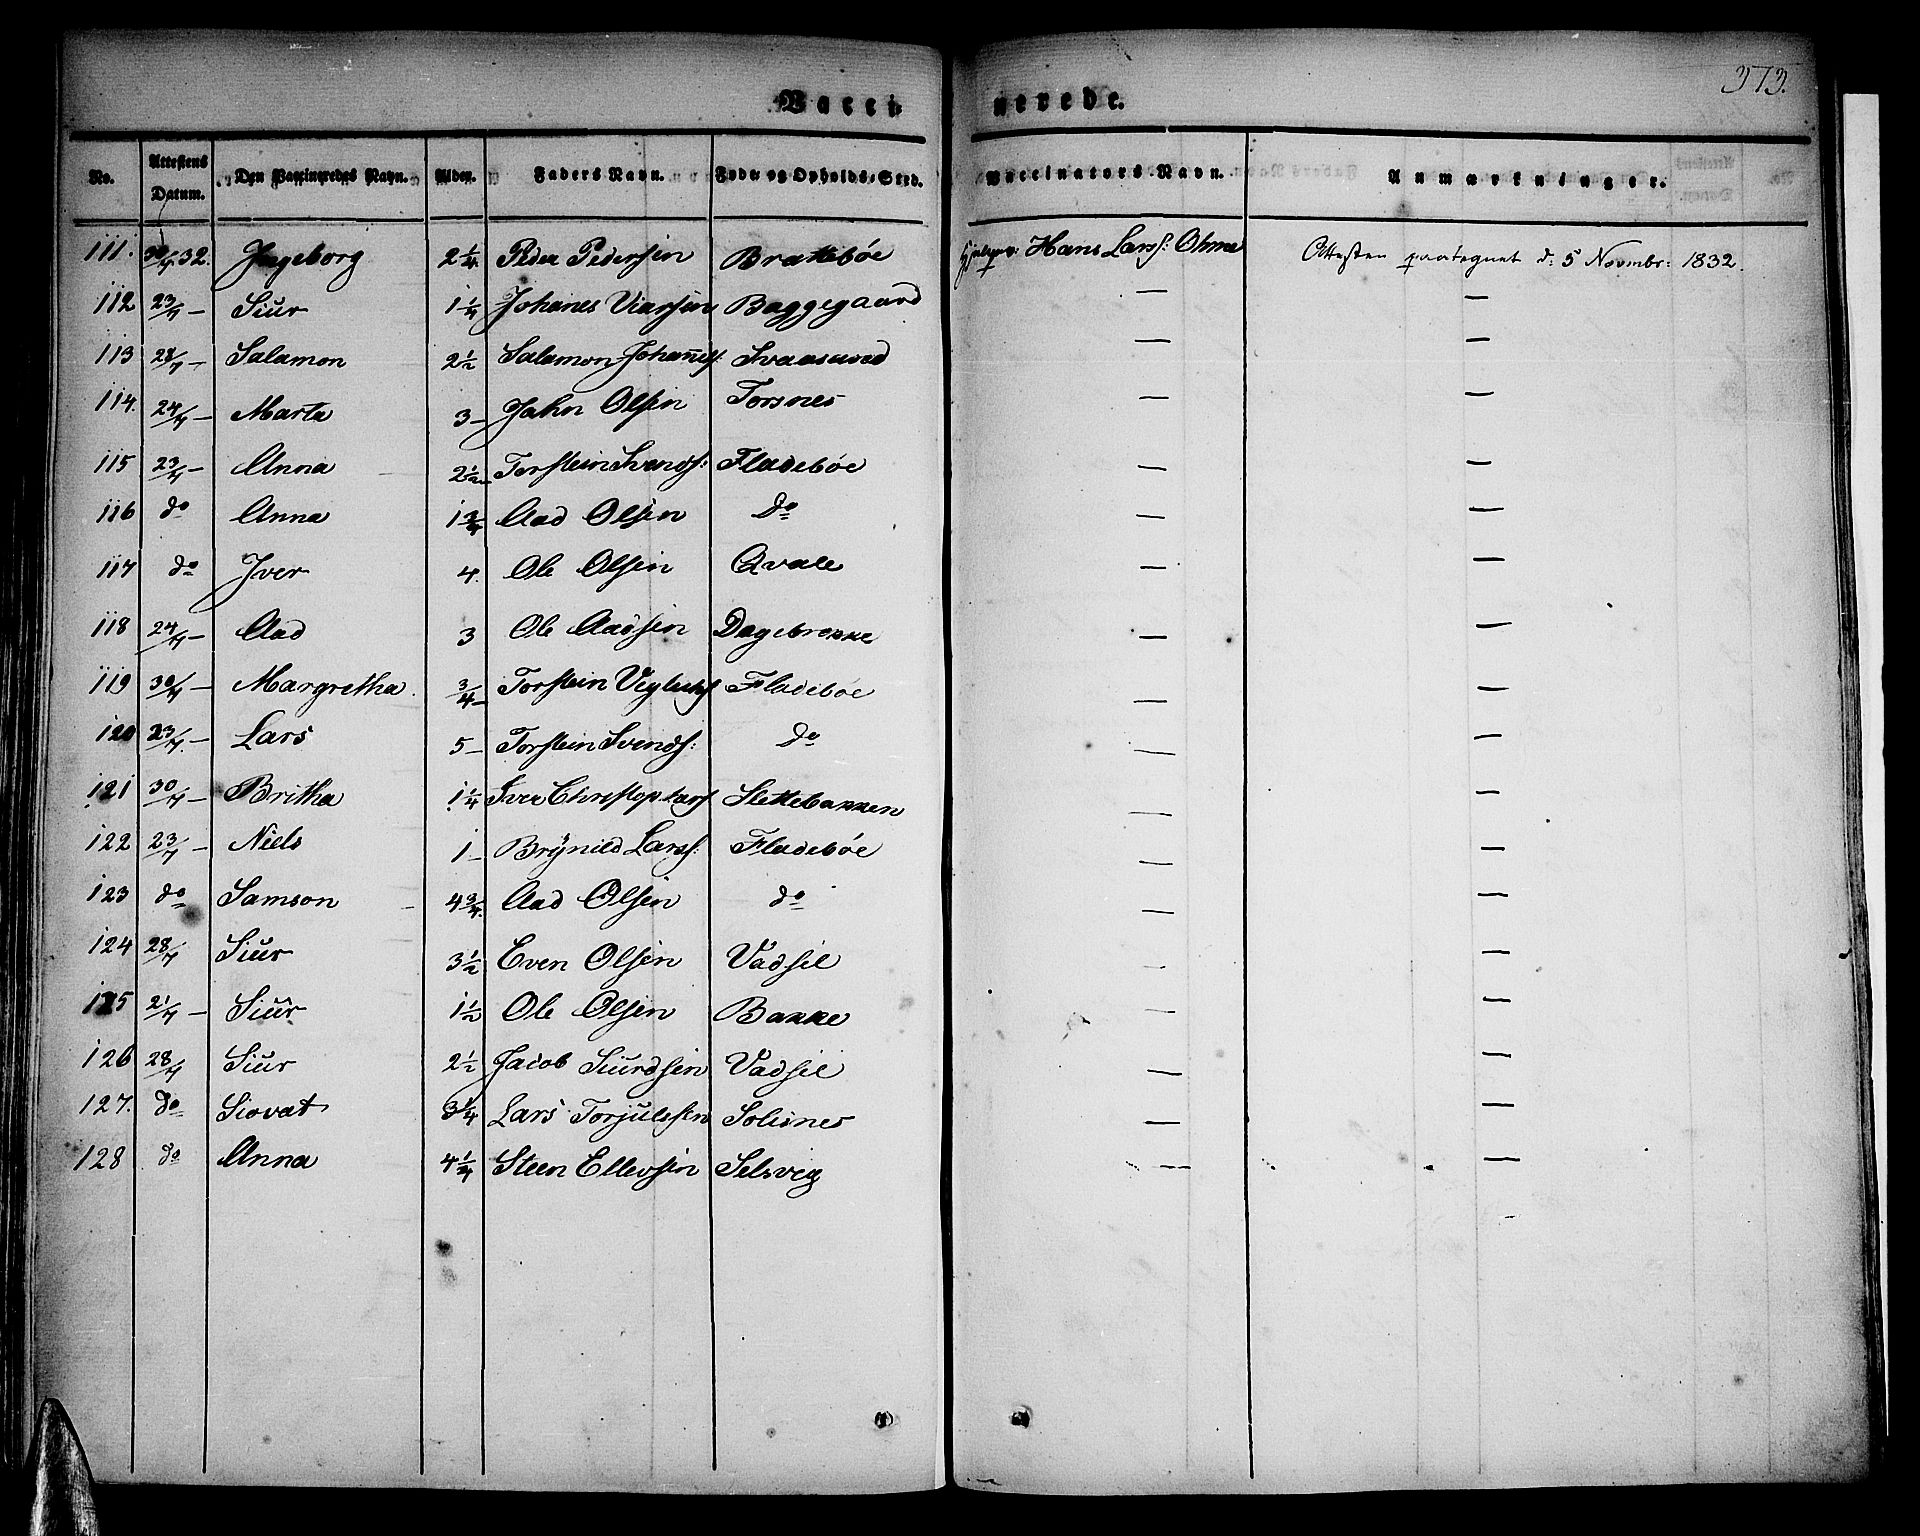 373.
Vacci nerede.
No. Attestens Datum. Den Vaccineredes Navn. Alder. Faders Navn. Føde og Opholds-Sted. Vaccinators Navn. Anmærkninger.
111. 30/7 32. Ingeborg 2 1/4 Peder Pedersen Brattebøe Hans Larss: Ohme Attesten paategnet d: 5 Novembr: 1832.
112 23/7 — Siur 1 1/4 Johanes Viarsen Baggegaard — —
113 28/7 — Salamon 2 1/2 Salamon Johannes: Svaasand — —
114. 24/7 — Marta 3 — Jahn Olsen Torsnes — —
115 23/7 — Anna 2 1/2 Torstein Svends: Fladebøe — —
116 do Anna 1 3/4 Aad Olsen Do — —
117 do Iver 4. Ole Olsen Qvale — —
118 24/7 — Aad 3 Ole Aadsen Dagebrekke — —
119 30/7 — Margretha. 3/4 — Torstein Fladebøe — —
120 23/7 — Lars 5 — Torstein Svends: Do — —
121 30/7 — Britha 1 1/4 Iver Christophers Slettebakken — —
122 23/7 — Niels 1 — Brÿnild Larss: Fladebøe — —
123 do Samson 4 3/4. Aad Olsen do — —
124 28/7 Siur 3 1/2 Even Olsen Vadsel — —
125 21/7 — Siur 1 1/2 Ole Olsen Bakke —
126 28/7 Siur 2 1/2 Jacob Siurdsen Vadsel — —
127. do Siovat 3 1/4 Lars Torjulssen Solesnes — —
128 do Anna 4 1/4 Steen Ellevsen Selsvig — —